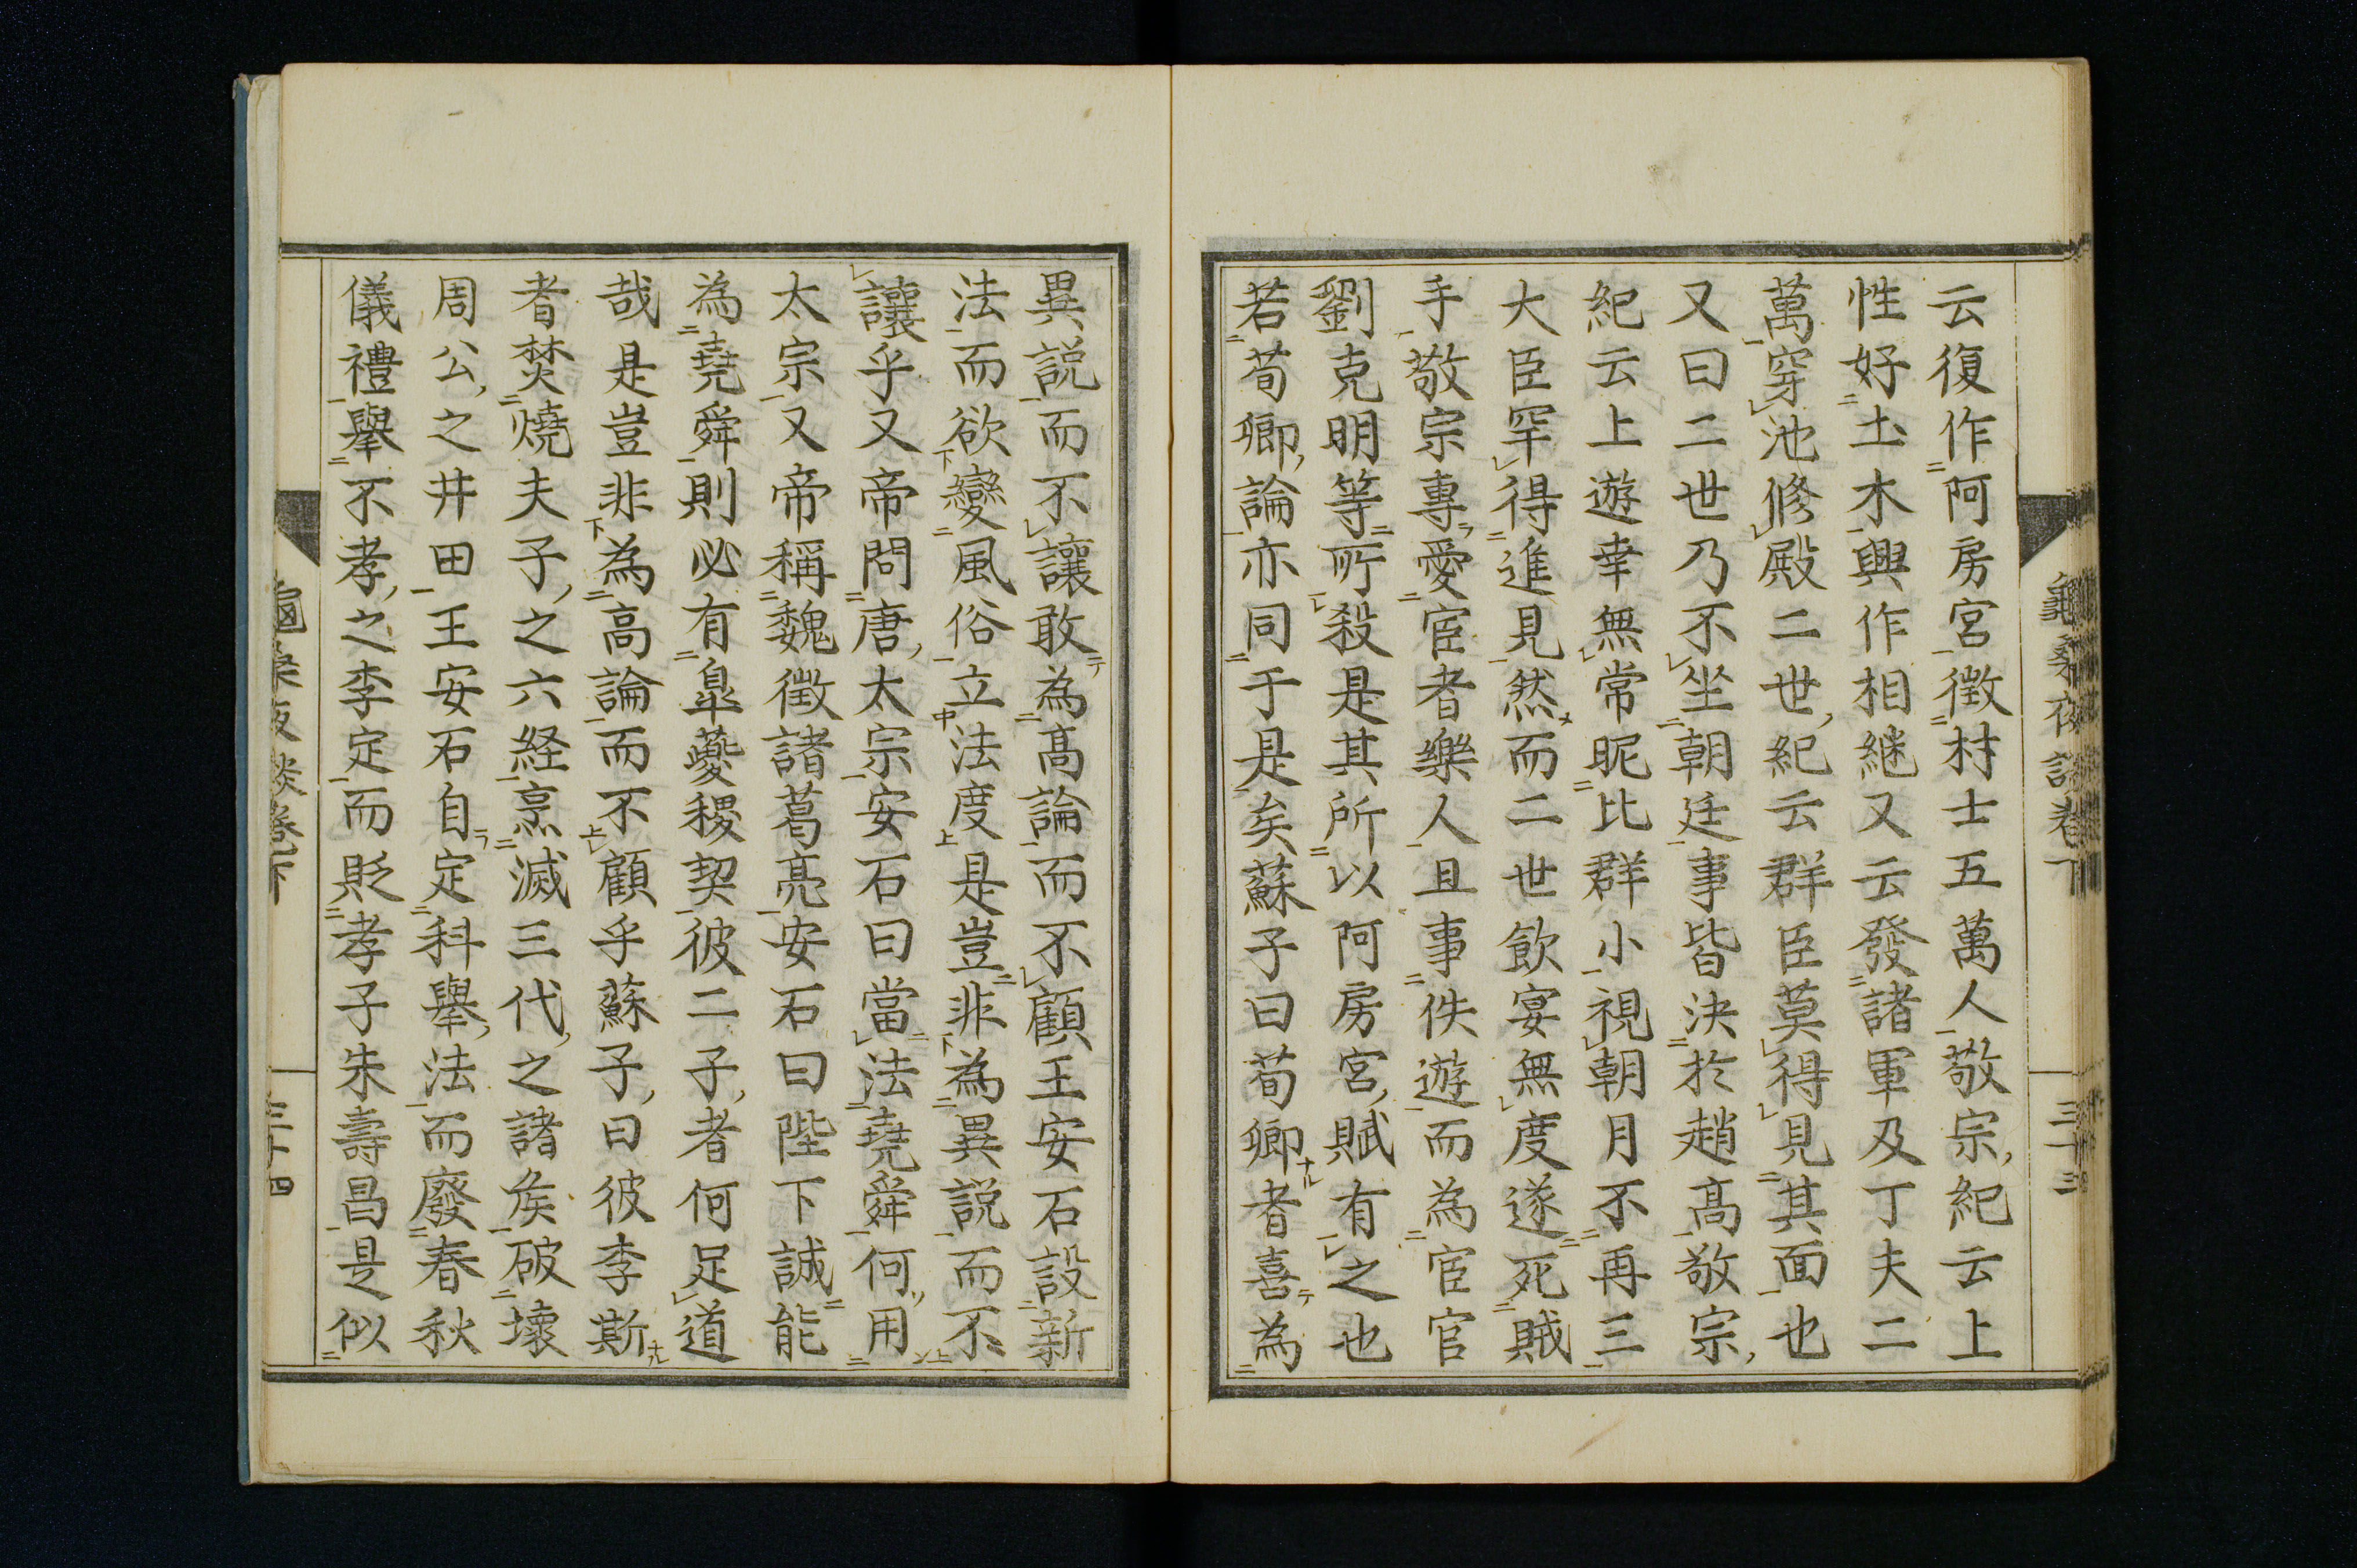 云復作阿房宮徴材士五萬人敬宗紀云上
性好土木興作相継又云發諸軍及丁夫二
萬穿池修殿二世紀云群臣莫得見其面也
又曰二世乃不坐朝廷事皆決於趙髙敬宗
紀云上遊幸無常昵比群小視朝月不再三
大臣罕得進見然而二世飲宴無度遂死賊
手敬宗專愛宦者樂人且事佚遊而為宦官
劉克明等所殺是其所以阿房宮賦有之也
若荀卿論亦同于是矣蘇子曰荀卿者喜為
異説而不讓敢為髙論而不顧王安石設新
法而欲變風俗立法度是豈非為異説而不
讓乎又帝問唐太宗安石曰當法堯舜何用
太宗又帝稱魏徴諸葛亮安石曰陛下誠能
為堯舜則必有皐夔稷契彼二子者何足道
哉是豈非為高論而不顧乎蘇子曰彼李斯
者焚燒夫子之六経烹滅三代之諸矦破壊
周公之井田王安石自定科擧法而廢春秋
儀禮擧不孝之李定而貶孝子朱壽昌是似
夜談卷下
三十四